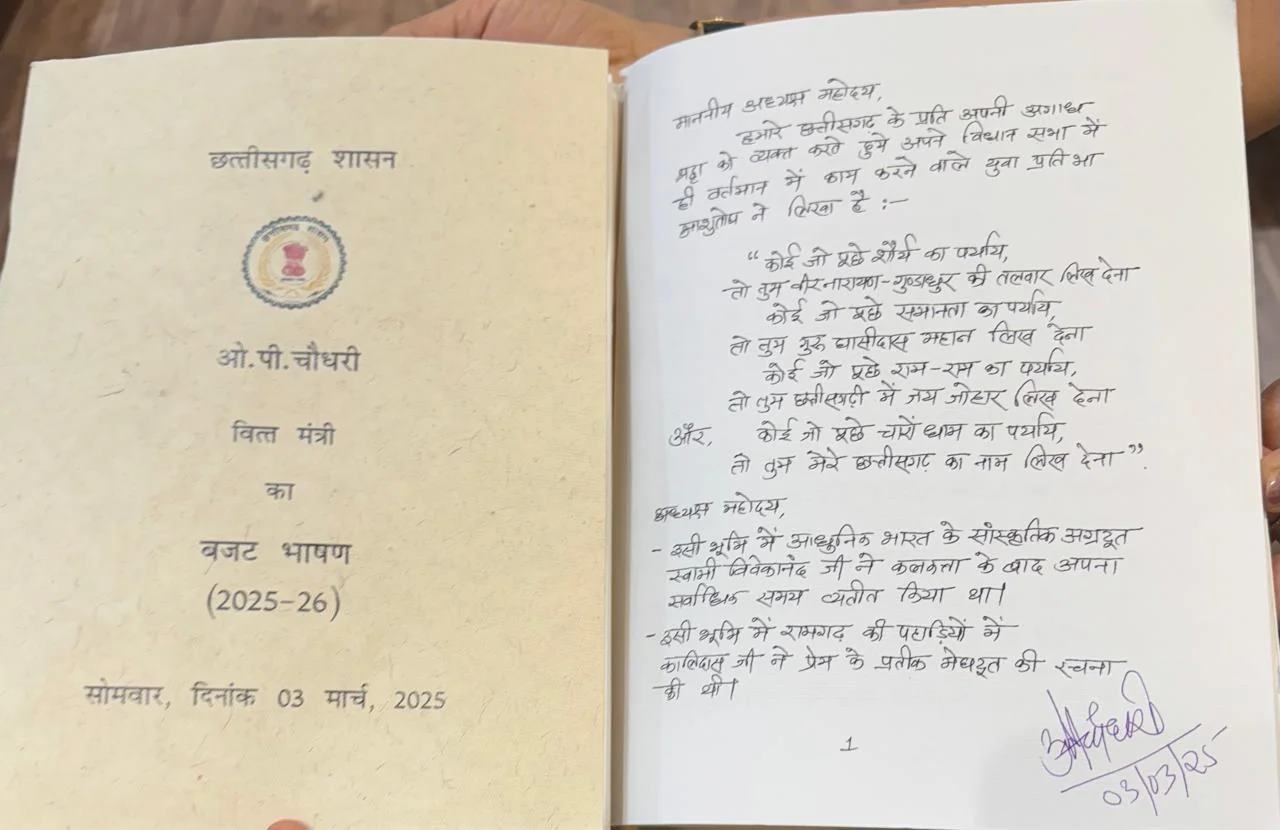 छत्तीसगढ़ शासन
छत्तीसगढ़ शासन
ओ.पी.चौधरी
वित्त मंत्री
का
बजट भाषण
(2025-26)
सोमवार, दिनांक 03 मार्च, 2025
माननीय अध्यक्ष महोदय,
हमारे छत्तीसगढ़ के प्रति अपनी अगाध
श्रद्धा को व्यक्त करते हुये अपने विधान सभा में
ही वर्तमान में काम करने वाले युवा प्रतिभा
आशुतोष ने लिखा है :-
“कोई जो पूछे शौर्य का पर्याय,
तो तुम वीरनारायण-गुण्डाधुर की तलवार लिख देना
कोई जो पूछे समानता का पर्याय,
तो तुम गुरु घासीदास महान लिख देना
कोई जो पूछे राम-राम का पर्याय,
तो तुम छत्तीसगढ़ी में जय जोहार लिख देना
और, कोई जो पूछे चारों धाम का पर्याय,
तो तुम मेरे छत्तीसगढ़ का नाम लिख देना”.
अध्यक्ष महोदय,
- इसी भूमि में आधुनिक भारत के सांस्कृतिक अग्रदूत
स्वामी विवेकानंद जी ने कलकत्ता के बाद अपना
सर्वाधिक समय व्यतीत किया था।
- इसी भूमि में रामगढ़ की पहाड़ियों में
कालिदास जी ने प्रेम के प्रतीक मेघदूत की रचना
की थी।
1
03/03/25